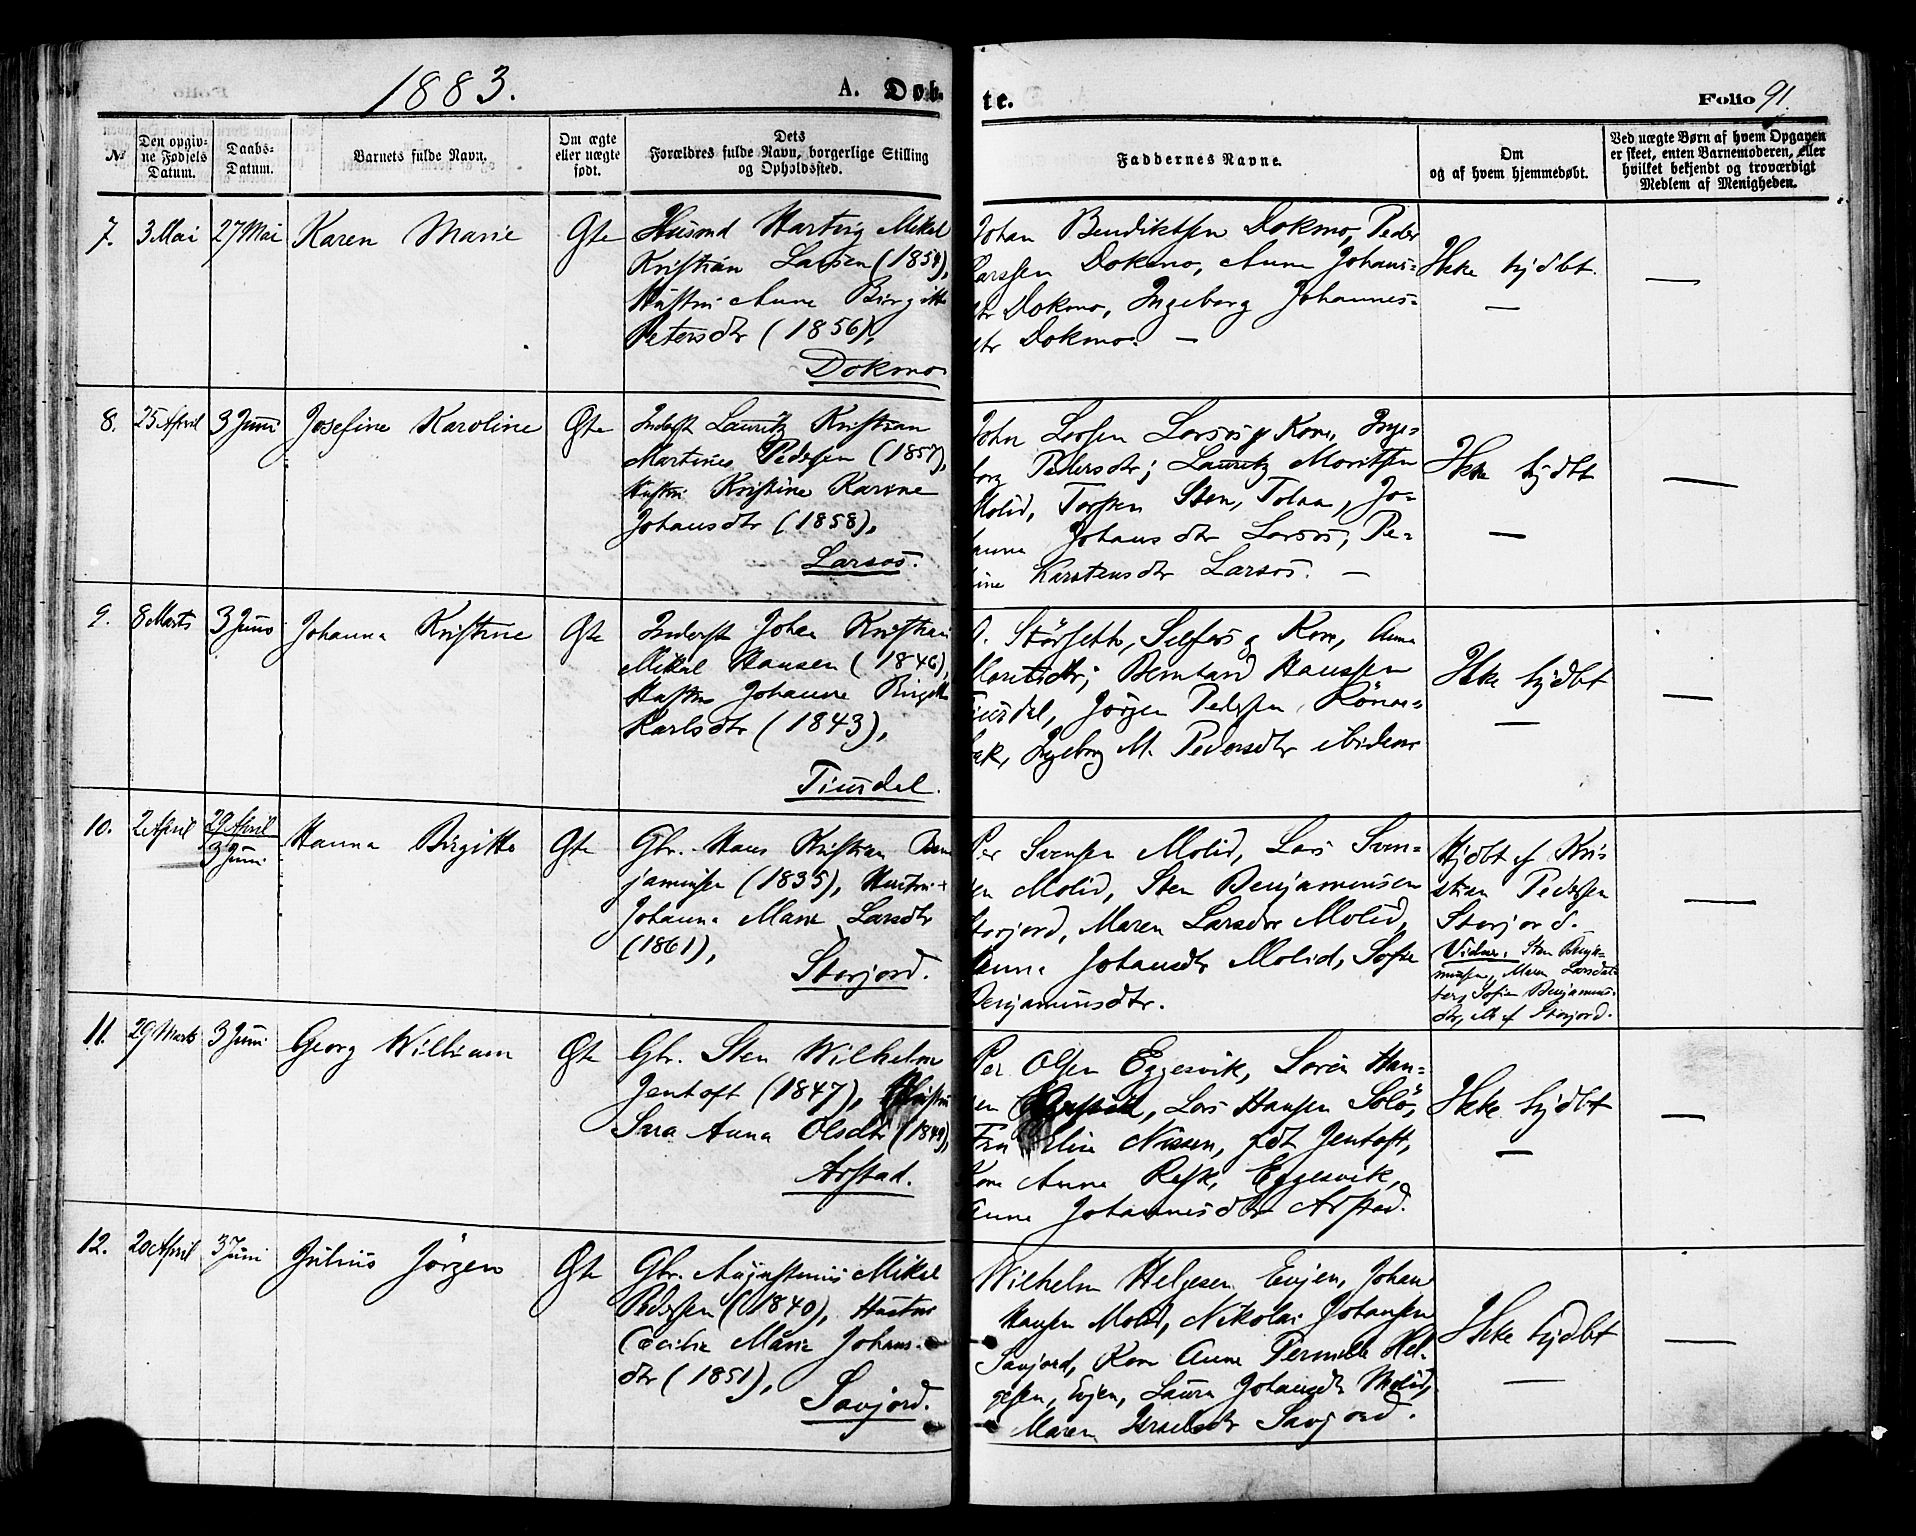 1883.
A. Døb
te.
Folio 91.
№
Den opgiv-
ne Fødsels
Datum.
Daabs-
Datum.
Barnets fulde Navn.
Om ægte
eller uægte
født.
Dets
Forældres fulde Navn, borgerlige Stilling
og Opholdssted.
Faddernes Navne.
Om
og af hvem hjemmedøbt.
Ved uægte Børn af hvem Opgaven
er skeet, enten Barnemoderen, eller
hvilket bekjendt og troværdigt
Medlem af Menigheden.
7. 3 Mai 27 Mai Karen Marie Ægte
Husmd Hartvig Mikal
Kristian Larsen (1854),
Hustru Anne Birgitte
Petersdtr (1856),
Dokmo
Johan Bendiktsen Dokmo, Peder
Larssen Dokmo, Anne Johans-
dtr Dokmo, Ingeborg Johannes-
dtr Dokmo. —
Ikke hjdbt.
—
—
8. 25 April 3 Juni Josefine Karoline Ægte
Inderst Lauritz Kristian
Martines Pedersen (1857),
Hustru Kristine Karine
Johansdtr (1858),
Larsos.
John Larsen Larsos og Kone, Inge-
borg Pedersdtr; Lauritz Moritsen
Molid, Torsten Sten, Tolaa, Jo-
hanna Johansdtr Larsos, Pe-
tine Karstensdtr Larsos. —
Ikke hjdbt
—
—
9. 8 Marts 3 Juni Johanna Kristine Ægte
Inderst Johan Kristian
Mikal Hansen (1846),
Hustru Johanne Birgitte
Karlsdtr (1843),
Tiurdal.
O. Störsett, Selfors og Kone, Anna
Moritsdtr; Berntard Hanssen
Tiurdal, Jörgen Pedersen Rönaa-
bæk, Ingeborg M. Pedersdtr ibidem
Ikke hjdbt
—
—
10. 2 April 29 April
3 Juni Hanna Birgitte Ægte
Gbr. Hans Kristian Ben-
jaminsen (1835), Hustru
Johanna Marie Larsdtr
(1861),
Storjord.
Per Svensen Molid, Lars Sven-
sen Molid, Sten Benjaminsen
Storjord, Maren Larsdtr Molid,
Anne Johansdtr Molid, Sofie
Benjaminsdtr.
Hjdbt af Kri-
stian Pedersen
Storjord.
Vidner. Sten Benja-
minsen, Maren Larsdat-
ter, Sofie Benjamins-
dtr, alle af Storjord.
—
11. 29 Marts 3 Juni Georg William Ægte
Gbr. Sten Wilhelm
Jentoft (1847), Hustru
Sara Anna Olsdtr (1849),
Arstad.
Per Olsen Eggesvik, Sören Han-
sen Lars Hansen Solö,
Fru Elin Nissen, fdt Jentoft,
Kone Anne Resk, Eggesvik,
Anne Johannesdtr Arstad.
Ikke hjdbt
—
—
12. 20 April 3 Juni Julius Jörgen Ægte
Gbr. Augustinus Mikal
Pedersen (1840), Hustru
Cecilie Marie Johans-
dtr (1851),
Savjord.
Wilhelm Helgesen Evjen, Johan
Hansen Molid, Nikolai Johansen
Savjord, Kone Anne Pernille Hel-
gesen, Evjen, Laura Johansdtr Molid,
Maren Israelsdtr Savjord.
Ikke hjdbt
—
—